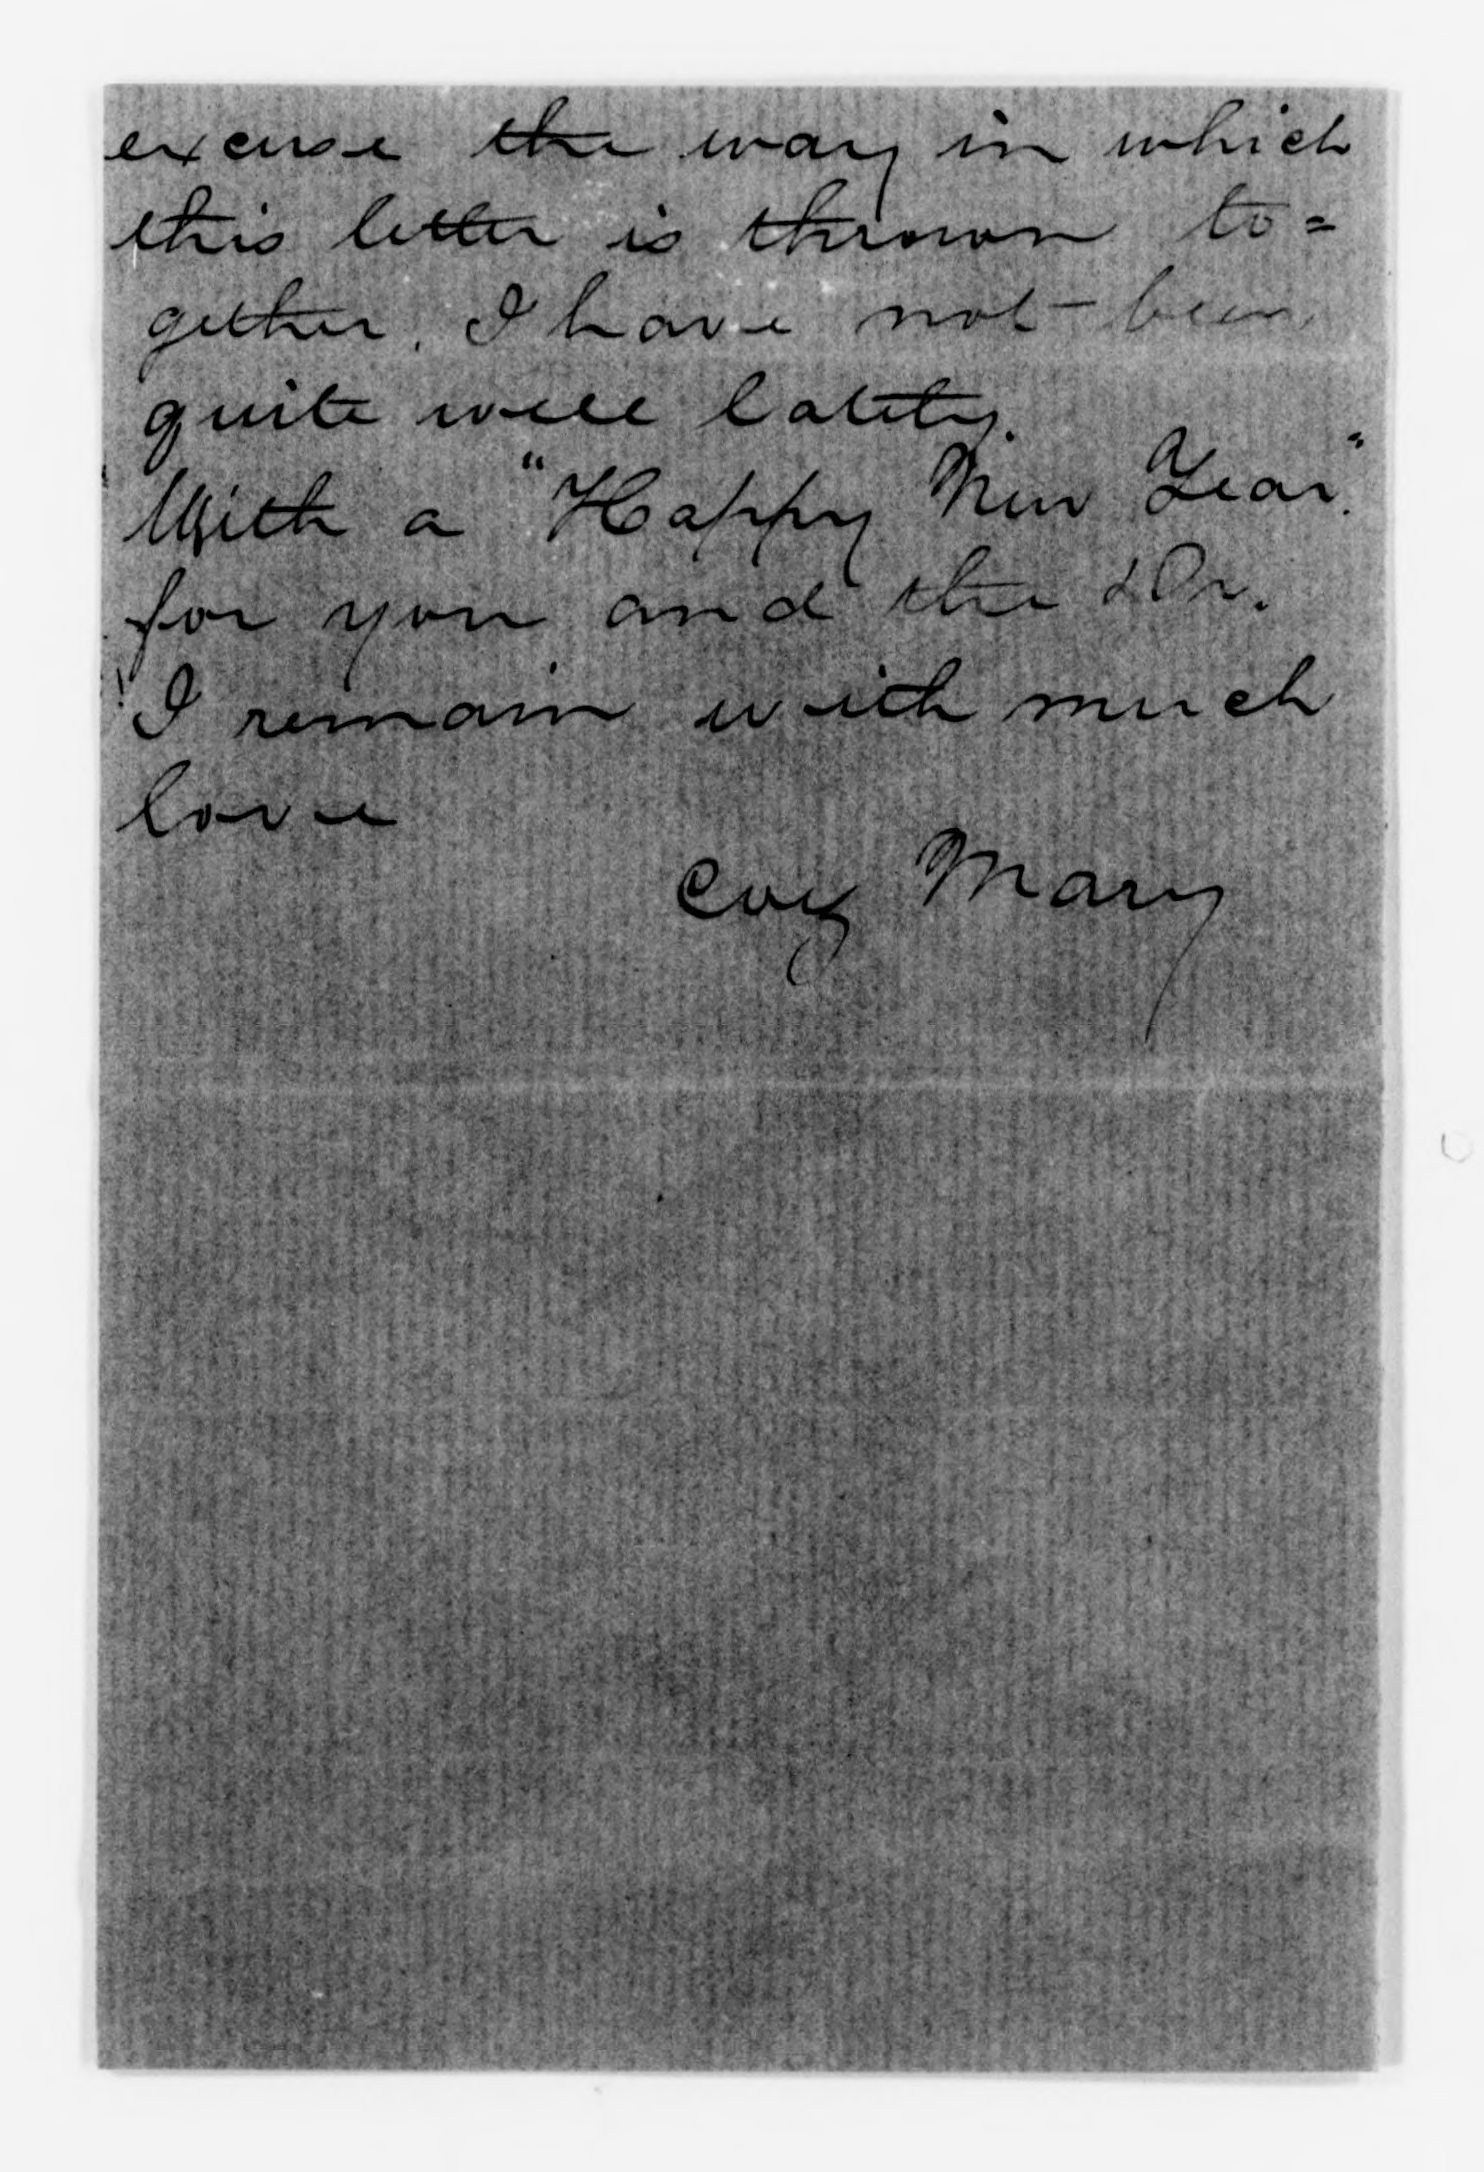 excuse the way in which
this letter is thrown to=
gether. I have not been
quite well lately.
With a "Happy New Year."
for you and the Dr.
I remain with much
love
Mary